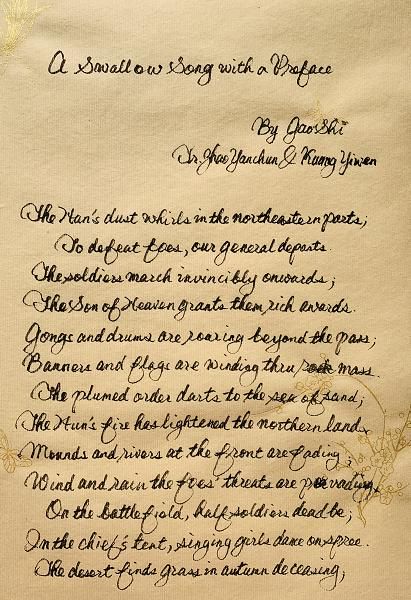 A Swallow Song with a Preface
By Gao Shi
Tr. Zhao Yanchun & Kuang Yiwen
The Han's dust whirls in the northeastern parts;
To defeat foes, our general departs.
The soldiers march invincibly onwards;
The Son of Heaven grants them rich awards.
Gongs and drums are roaring beyond the pass;
Banners and flags are winding thru mass.
The plumed order darts to the sea of sand;
The Hun's fire has lightened the northern land.
Mounds and rivers at the front are fading;
Wind and rain the foes' threats are pervading.
On the battlefield, half soldiers dead be;
In the chief's tent, singing girls dance on spree.
The desert finds grass in autumn deceasing;